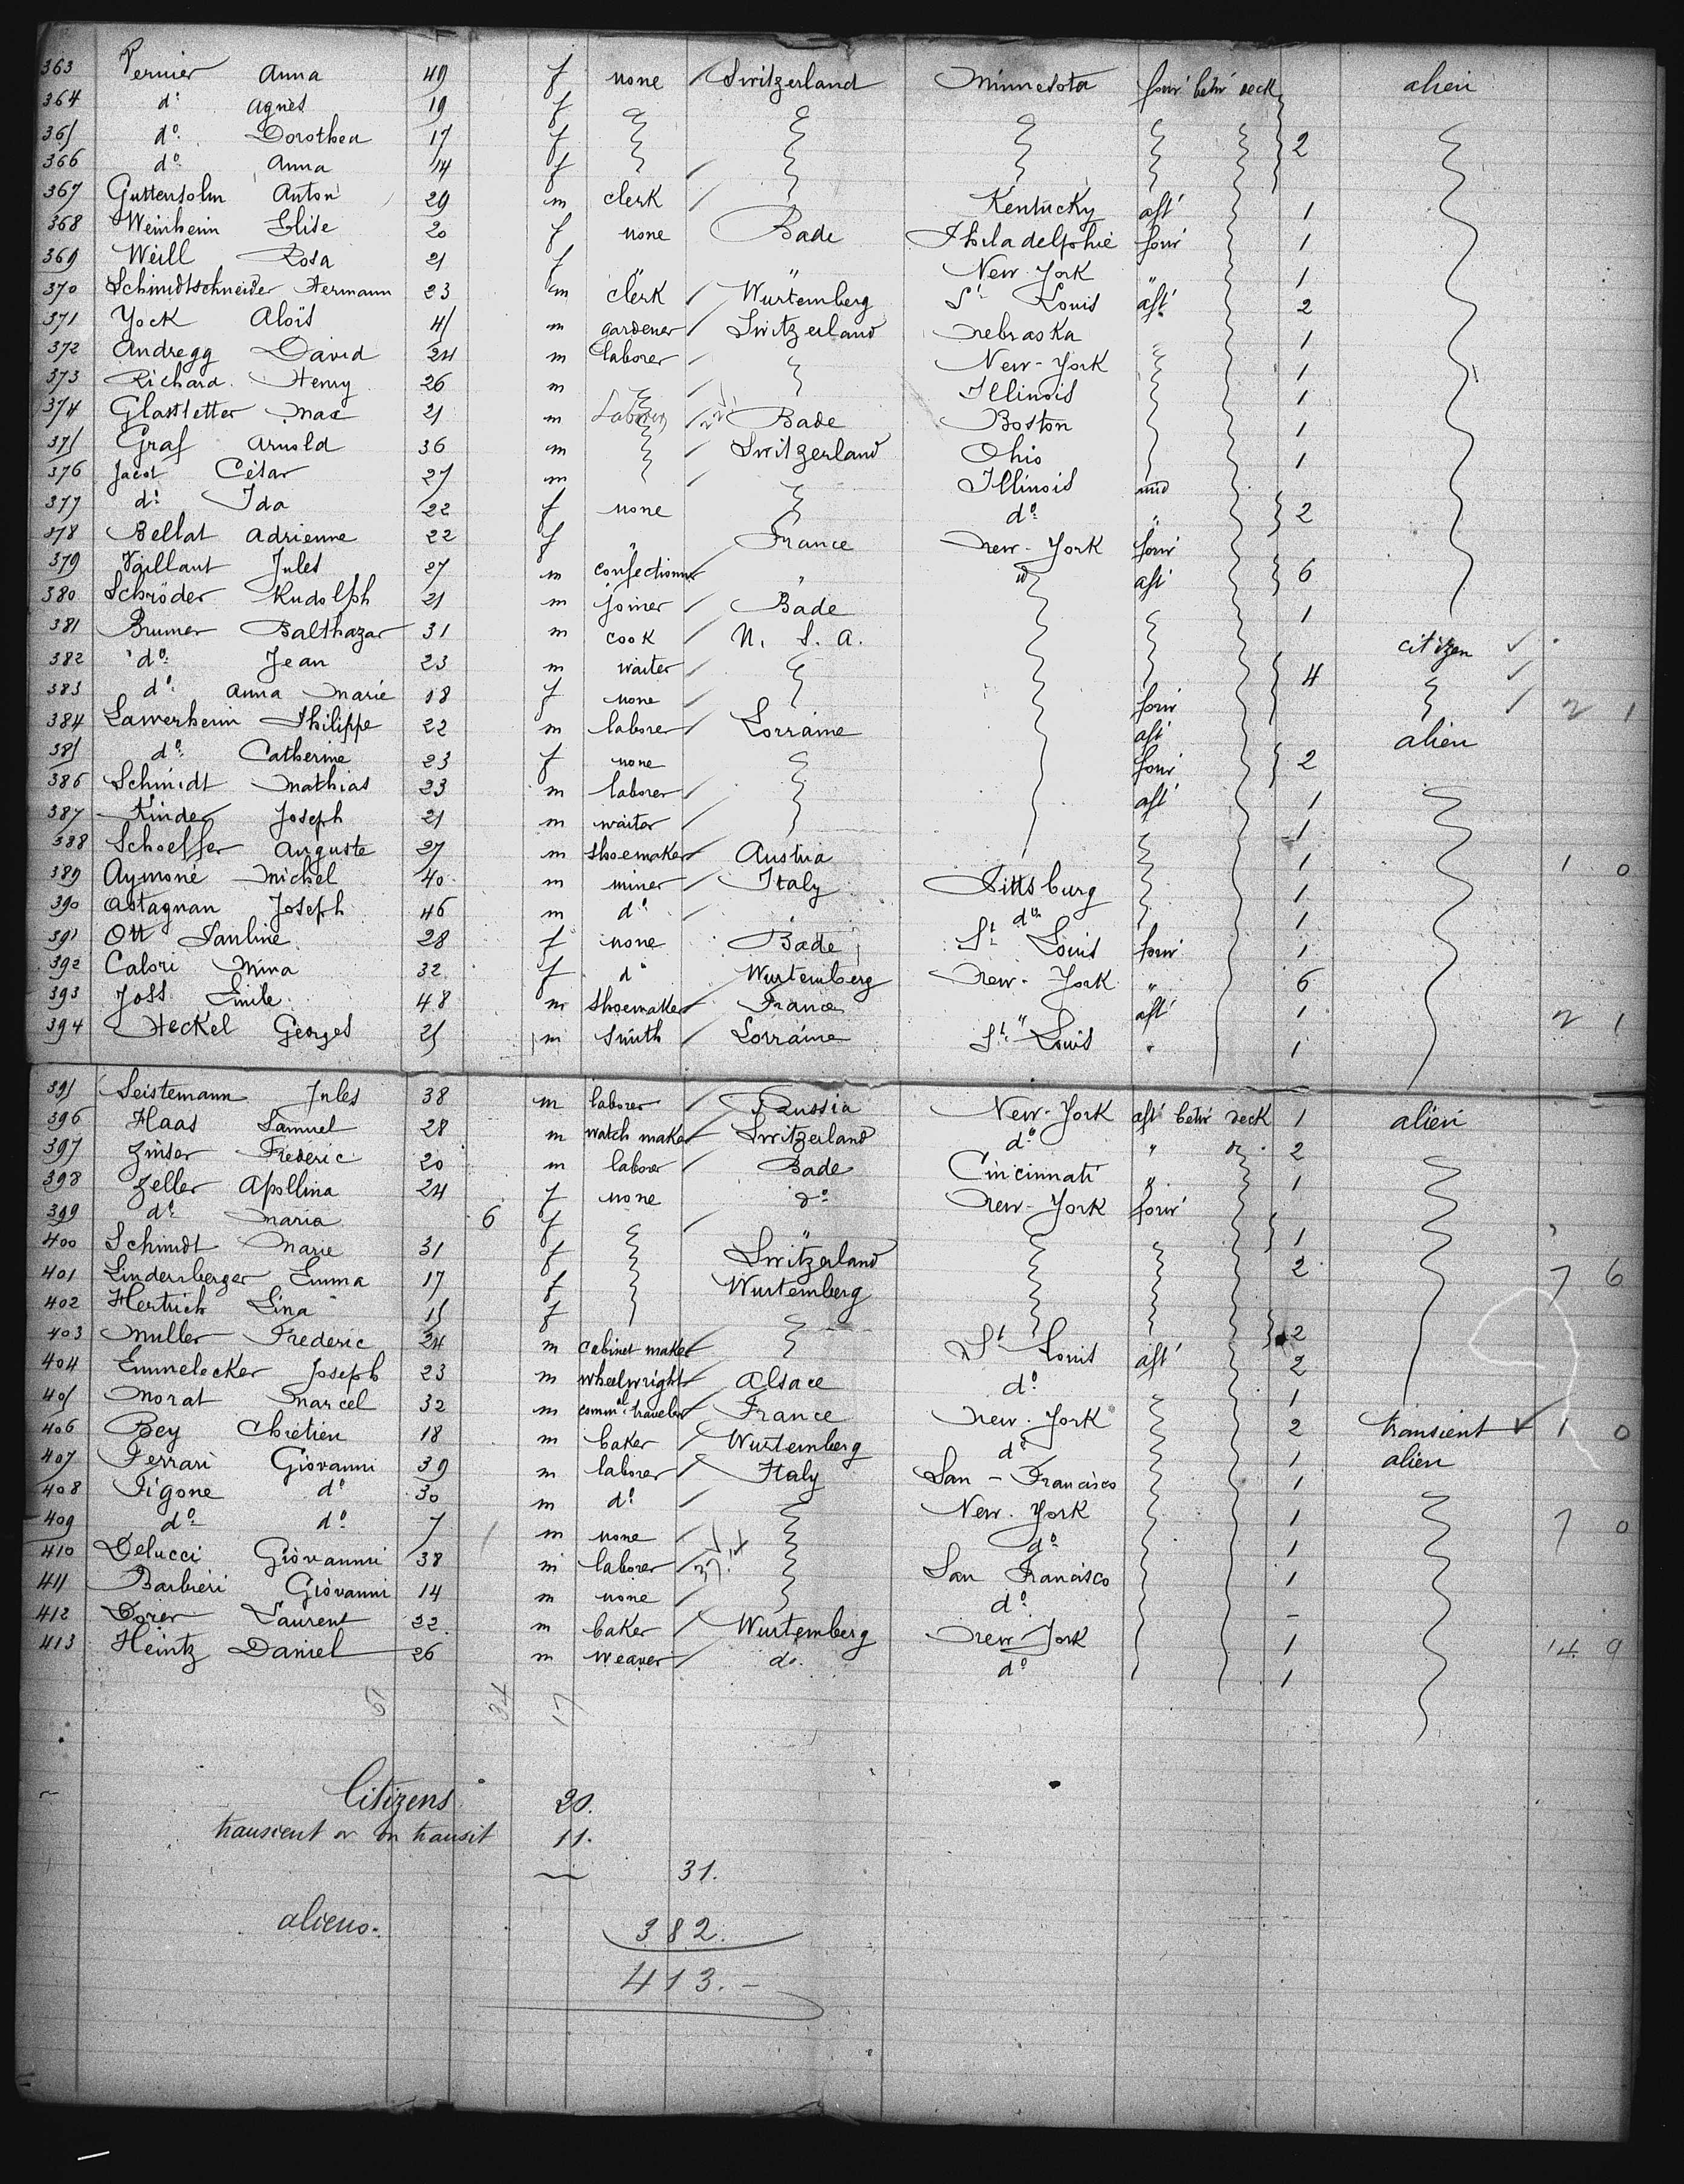 363 Pernier Anna 49 f none Switzerland Minnesota forw' betw' deck alien
364 d° Agnes 19 f
365 d° Dorothea 17 f 2
366 d° Anna 14 f
367 Anton 29 m clerk Kentucky aft' 1
368 Weinheim Elise 20 f none Bade Philadelphie forw' 1
369 Weill Rosa 21 f " " New-York " 1
370 Schmidtschneider Hermann 23 m clerk Wurtemberg St Louis aft' 2
371 Yock Aloïs 45 m gardener Switzerland Nebraska 1
372 Andregg David 24 m laborer New-York 1
373 Richard Henry 26 m Illinois 1
374 Glasstetter Max 21 m Laborer Bade Boston 1
375 Graf Arnold 36 m Switzerland Ohio 1
376 Jacot César 27 m Illinois mid
377 d° Ida 22 f none d° " 2
378 Bellat Adrienne 22 f " France New-York forw'
379 Vaillant Jules 27 m confectioner " d° aft' 6
380 Schröder Rudolph 21 m joiner Bade 1
381 Brumer Balthazar 31 m cook U. S. A. citizen
382 d° Jean 23 m waiter 4
383 d° Anna Marie 18 f none forw' 2 1
384 Lawerheim Philippe 22 m laborer Lorraine aft' alien
385 d° Catherine 23 f none forw' 2
386 Schmidt Mathias 23 m laborer aft' 1
387 Kinder Joseph 21 m waiter 1
388 Schoeffer Auguste 27 m shoemaker Austria 1 1 0
389 Aymoné Michel 40 m miner Italy Pittsburg 1
390 Astagnan Joseph 46 m d° " d° 1
391 Ott Pauline 28 f none Bade St Louis forw' 1
392 Calori Mina 32 f d° Wurtemberg New-York " 6
393 Joss Emile 48 m shoemaker France " aft' 1
394 Heckel Georges 25 m smith Lorraine St Louis " 1 2 1
395 Seistemann Jules 38 m laborer Russia New-York aft' betw' deck 1 alien
396 Haas Samuel 28 m watch maker Switzerland d° " d° 2
397 Zinser Frédéric 20 m laborer Bade Cincinnati " 1
398 Zeller Apollina 24 f none d° New-York forw'
399 d° Maria 6 f " 1
400 Schmidt Marie 31 f Switzerland 2
401 Lindenberger Emma 17 f Wurtemberg 7 6
402 Hertrich Lina 15 f 2
403 Muller Frédéric 24 m cabinet maker St Louis aft' 2
404 Emmelecker Joseph 23 m wheelwright Alsace d° 1
405 Morat Marcel 32 m comm'al traveler France New-York 2 transient 1 0
406 Bey Chrétien 18 m baker Wurtemberg d° 1 alien
407 Ferrari Giovanni 39 m laborer Italy San-Francisco 1
408 Figone d° 30 m d° New-York 1
409 d° d° 7 m none d° 1 7 0
410 Delucci Giovanni 38 m laborer San Francisco 1
411 Barbieri Giovanni 14 m none d° -
412 Dorer Laurent 22 m baker Wurtemberg New-York 1
413 Heintz Daniel 26 m weaver d° d° 1 14 9
5 34 17
Citizens 20.
transient or in transit 11.
31.
aliens. 382.
413.-